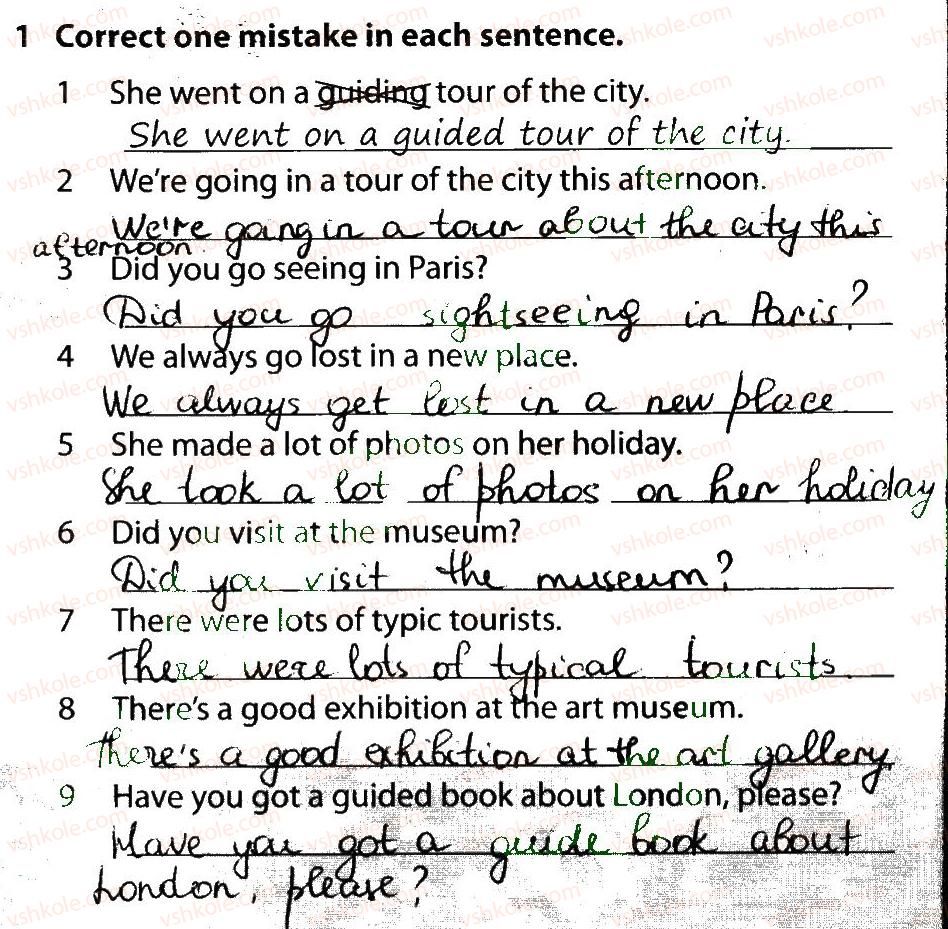 1 Correct one mistake in each sentence.
1 She went on a guiding tour of the city.
She went on a guided tour of the city.
2 We're going in a tour of the city this afternoon.
We're going in a tour about the city this
afternoon.
3 Did you go seeing in Paris?
Did you go sightseeing in Paris?
4 We always go lost in a new place.
We always get lost in a new place
5 She made a lot of photos on her holiday.
She took a lot of photos on her holiday
6 Did you visit at the museum?
Did you visit the museum?
7 There were lots of typic tourists.
There were lots of typical tourists.
8 There's a good exhibition at the art museum.
There's a good exhibition at the art gallery.
9 Have you got a guided book about London, please?
Have you got a guide book about
London, please?
vshkole.com